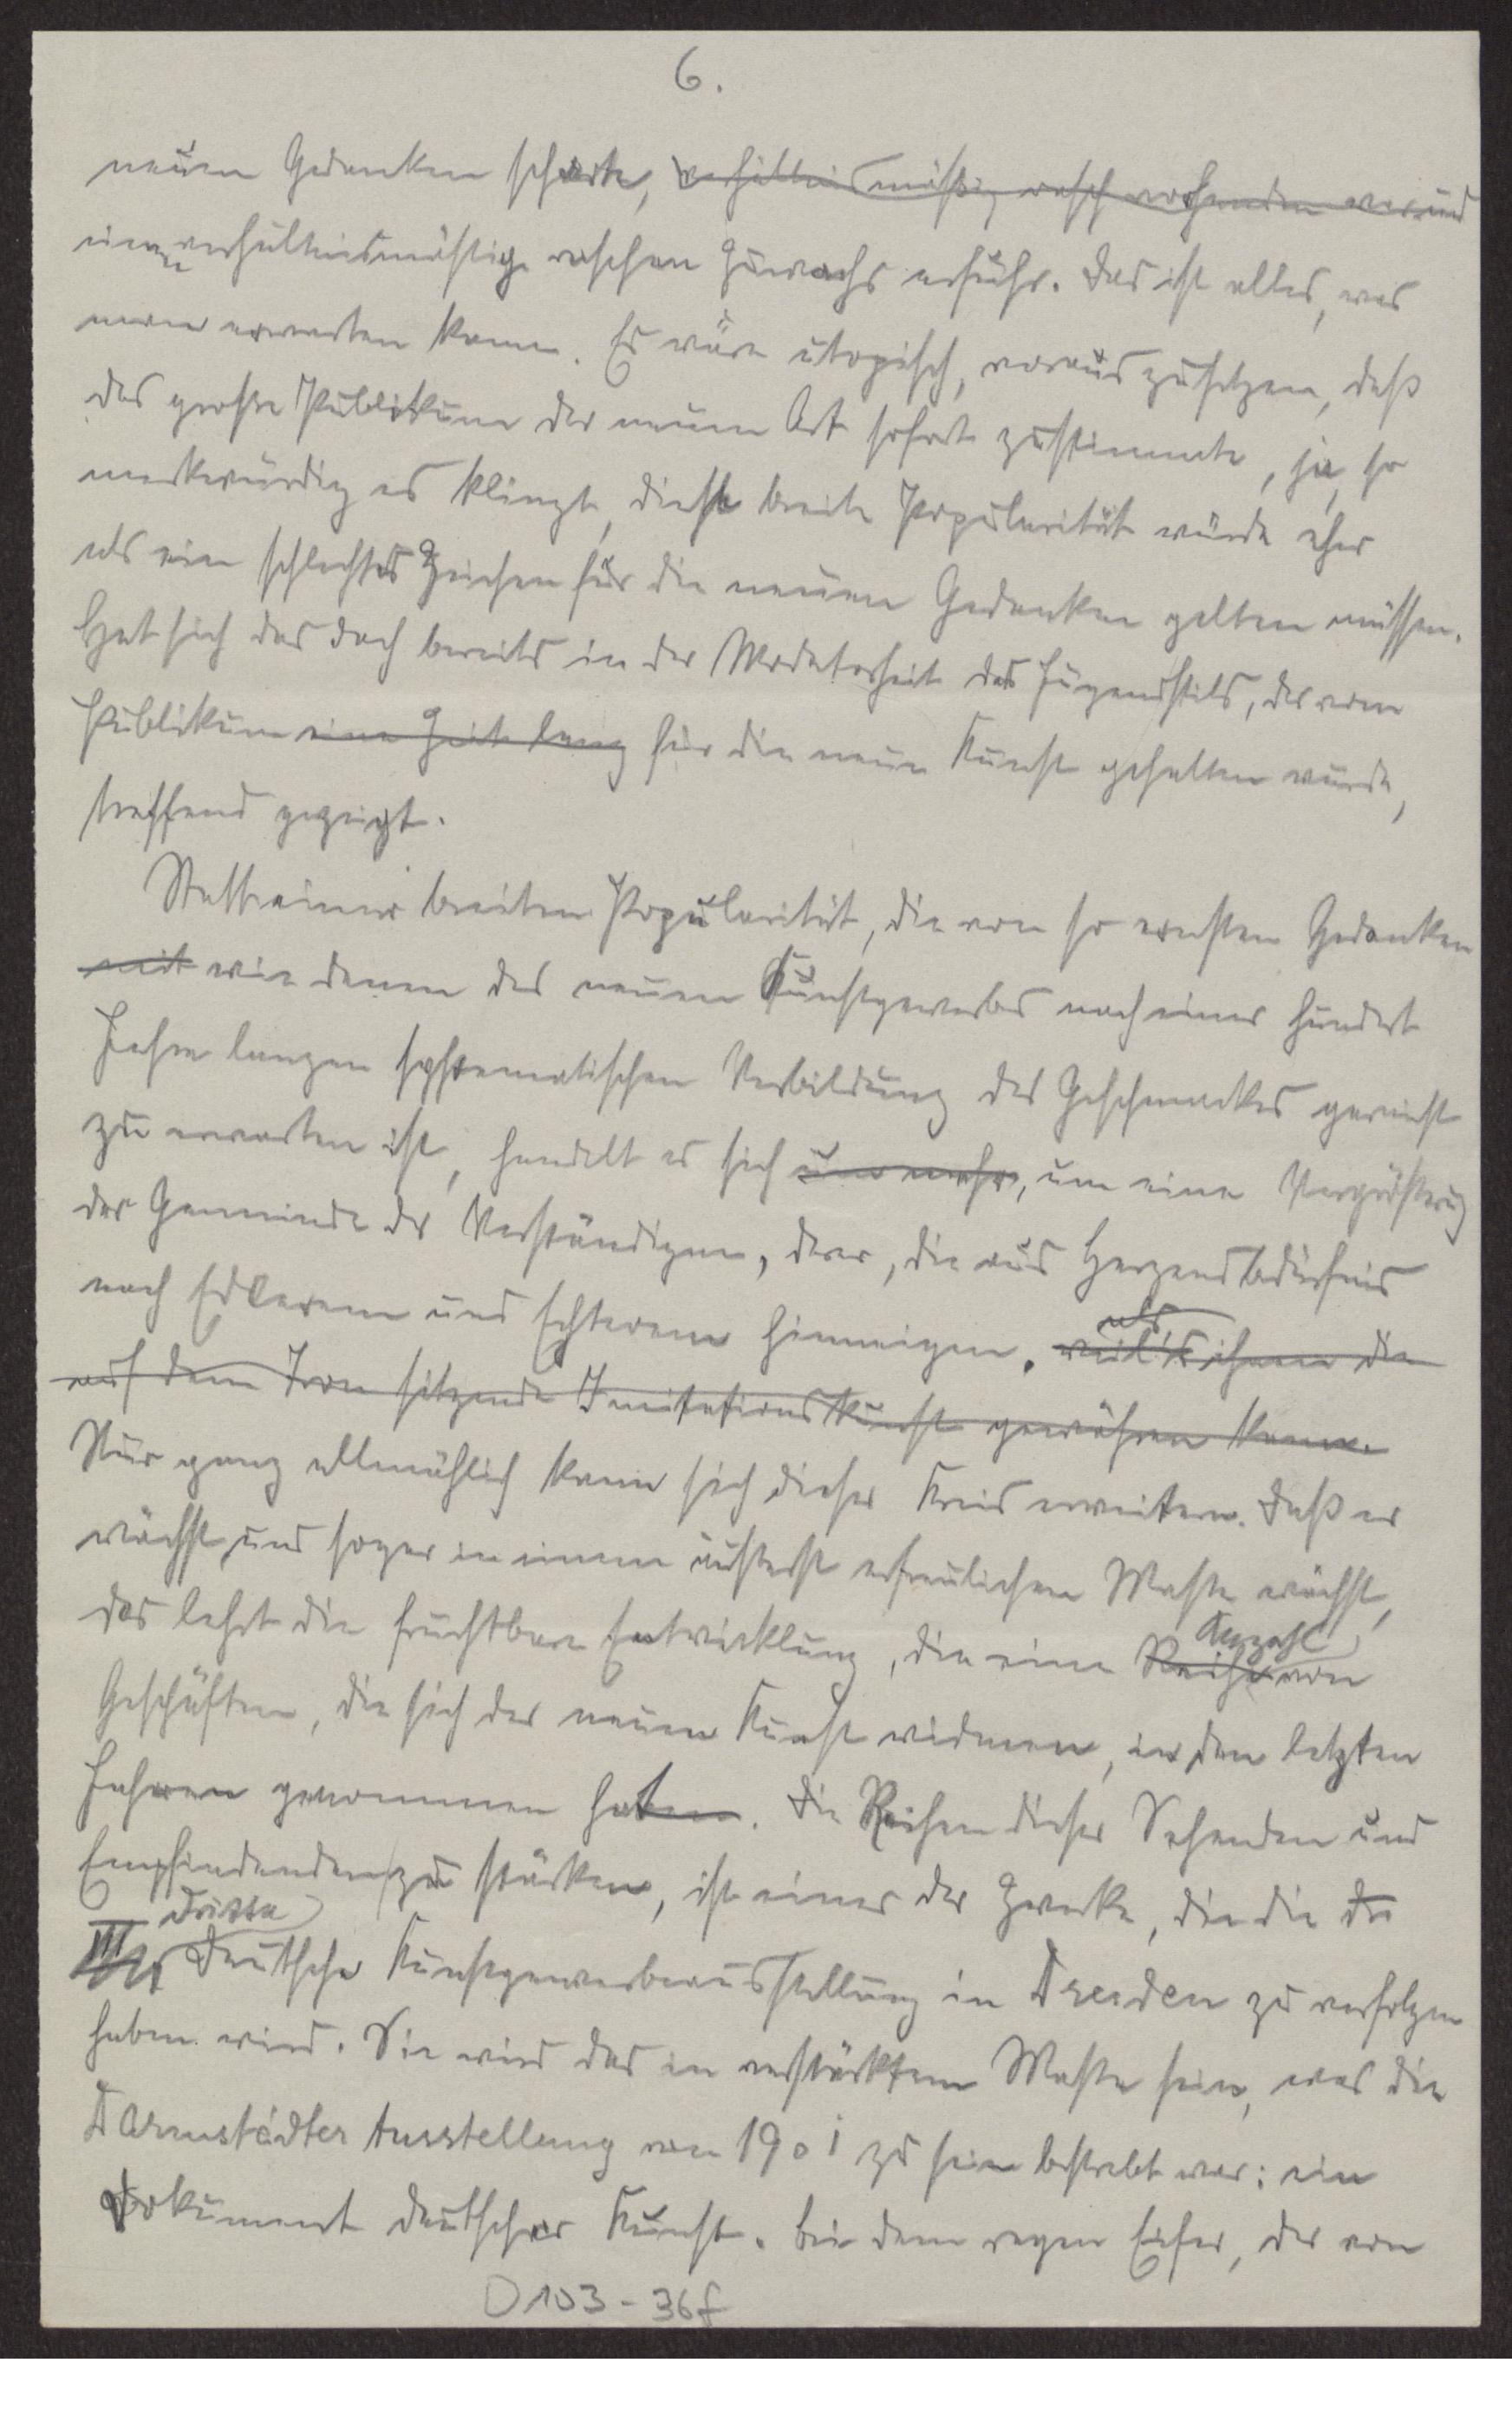 6.
neuen Gedanken scharte, verhältnismäßig rasch wachsenden und
einen verhältnismässig raschen Zuwachs erführe. Das ist alles, was
man erwarten kann. Es wäre utopisch, vorauszusetzen, daß
das grosse Publikum der neuen Art sofort zustimmte, ja, so
merkwürdig es klingt, diese breite Popularität würde eher
als ein schlechtes Zeichen für die neuen Gedanken gelten müssen.
Hat sich das doch bereits in der Modetorheit des Jugendstils, der vom
Publikum eine Zeit lang für die neue Kunst gehalten wurde,
treffend gezeigt.
Statt einer breiten Popularität, die von so ernsten Gedanken
mit wie denen des neuen Kunstgewerbes nach einer hundert
Jahre langen systematischen Verbildung des Geschmackes gar nicht
zu erwarten ist, handelt es sich um mehr, um eine Vergrösserung
der Gemeinde der Verständigen, derer, die aus Herzensbedürfnis
nach Edlerem und Echterem hinneigen, als
weil's ihnen die
auf dem Tron sitzende Imitationskunst gewähren kann.
Nur ganz allmählich kann sich dieser Kreis erweitern. Daß er
wächst, und sogar in einem äusserst erfreulichen Masse wächst,
das lehrt die fruchtbare Entwicklung, die eine Reihe Anzahl von
Geschäften, die sich der neuen Kunst widmen, in den letzten
Jahren genommen haben. Die Reihen dieser Sehenden und
Empfindenden zu stärken, ist einer der Zwecke, die die die
III Dritte Deutsche Kunstgewerbeausstellung in Dresden zu verfolgen
haben wird. Sie wird das in verstärktem Masse sein, was die
Darmstädter Ausstellung von 1901 zu sein bestrebt war: ein
Dokument deutscher Kunst. Bei dem regen Eifer, der von
D 103-36f